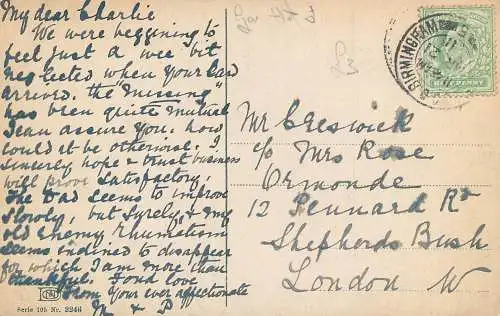 My dear Charlie
We were beggining to
feel just a wee bit
neglected when Your Card
arrived. the "Missing"
has been quite mutual
I can assure You. how
could it be otherwise. I
sincerely hope & trust business
will prove Satisfactory.
The Dad seems to improve
slowly, but Surely & My
old Enemy Rheumatism
seems inclined to disappear
for which I am more than
thankful. Fond love
From Your ever affectionate
M & P
Serie 105 Nr. 2246
BIRMINGHAM
Mr Creswick
c/o Mrs Rose
Ormonde
12 Pennard Rd
Shepherds Bush
London W
£3